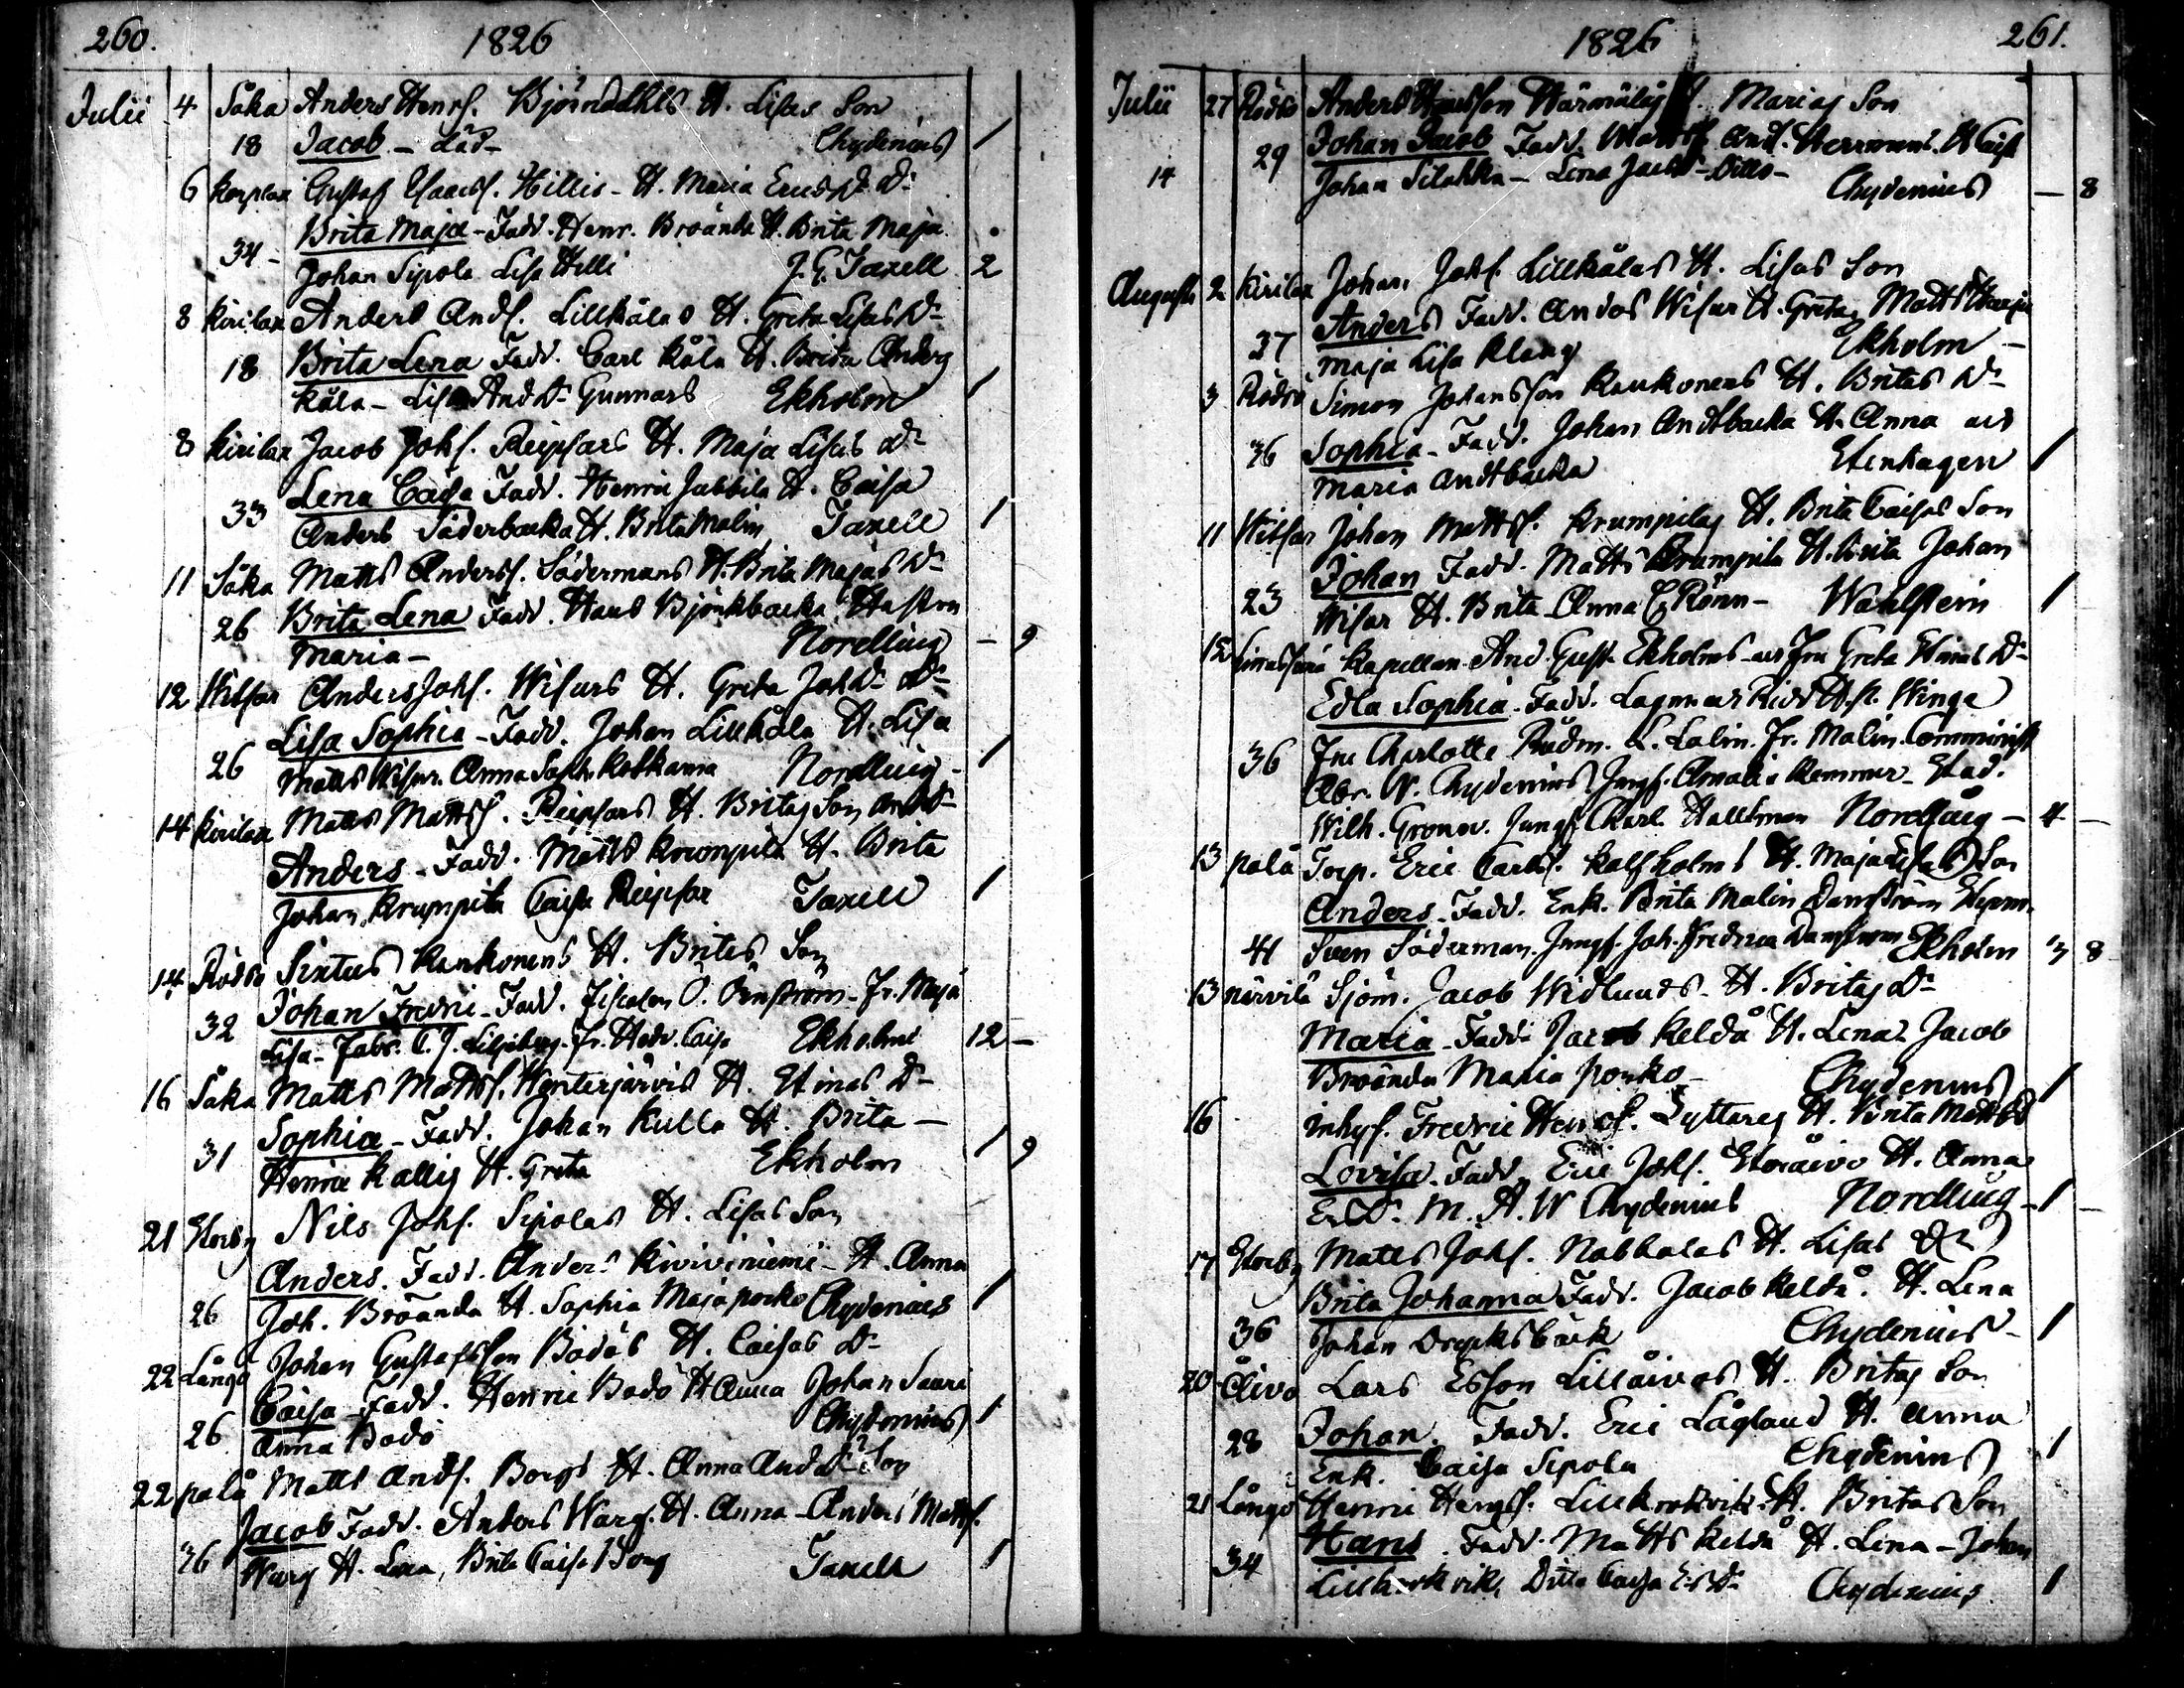 260.
1826
Julii 4 Såka Anders Henrs. Björndahls H. Lisas Son
18 Jacob - död - Chydenius 1
6 Korplax Gustaf Isaacs. Hillis - H. Maria Ericsdr Dr
Brita Maja - Fadd. Henr. Broända H. Brita Maja
34 - Johan Sipola Lisa Hilli J. G. Taxell 2
8 Kirilax Anders Ands. Lillkålas H. Greta Lisas Dr
18 Brita Lena Fadd. Carl Kåla H. Brita Anders
Kåla - Lisa And Dr Gunnars Ekholm 1
8 Kirilax Jacob Johs. Reipsars H. Maja Lisas Dr
33 Lena Caisa Fadd. Henric Jabbila H. Caisa
Anders Söderbacka H. Brita Malin Taxell 1
11 Såka Matts Anderss. Södermans H. Brita Majas Dr
26 Brita Lena Fadd. Hans Björkbacka Hustrun
Maria - Nordling - 9
12 Witsar Anders Johs. Wisurs H. Greta Joh Dr Dr
Lisa Sophia - Fadd. Johan Lillkåla H. Lisa
26 Matts Wisur. Anna Soph. Nordling - 1
14 Kirilax Matts Mattss. Reipsars H. Britas Son
Anders - Fadd. Matts Krumpila H. Brita
Johan Krumpila Caisa Reipsar Taxell 1
14 Rödsö Sixtus Kaukonens H. Britas Son
32 Johan Fredric - Fadd. Fiscalen O. Fr. Maja
Lisa - Fabr. C. J. Fr. Hedv. Caisa Ekholm 12 -
16 Såka Matts Mattss. Wenterjärvis H. Stinas Dr
31 Sophia - Fadd. Johan Kulla H. Brita -
Henric Kallis H. Greta Ekholm 1 9
21 Storby Nils Johs. Sipolas H. Lisas Son
Anders. Fadd. Anders Kiviniemi - H. Anna
26 Joh. Broända H. Sophia Maja Porko Chydenius 1
22 Långö Johan Gustafsson Bodös H. Caisas Dr
Caisa - Fadd. Henric Bodö H Anna Johan Saari
26 Anna Bodö Chydenius 1
22 Palå Matts Ands. Borgs H. Anna And Dr Son
Jacob Fadd. Anders Warg. H. Anna - Anders Mattss.
36 Warg H. Lena, Brita Caisa Borg Taxell 1
1826
261.
Julii 27 Rödsö Anders Hansson Wärmäläs H. Marias Son
29 Johan Jacob Fadd. And. Herrmans. H Caisa
14 Johan Silahka - Lena - Ditto - Chydenius - 8
Augusti 2 Kirilax Johan Johs. Lillkålas H. Lisas Son
37 Anders Fadd. Anders Wisur H. Greta, Matts
Maja Lisa Klang Ekholm -
3 Rödsö Simon Johansson Kaukonens H. Britas Dr
36 Sophia - Fadd. Johan Andtbacka H. Anna
Maria Andtbacka Stenhagen 1
11 Witsar Johan Mattss. Krumpilas H. Brita Caisas Son
23 Johan Fadd. Matts Krumpila H. Brita Johan
Wisur H. Brita Anna C. Rönn - Wahlstein 1
12 Kapellan And. Gust. Ekholms - Fru Greta Stinas Dr
Edla Sophia - Fadd. Lagman Winge
36 Fru Charlotte Rådm. L. Lalin. Fr. Malin.
Abr. W. Chydenius Jungf. Amalia Stad.
Wilh. Gronov. Jungf. Charl. Hallman Nordling - 4 -
13 Palå Torp. Eric Carlss. Kalfholms H. Maja Lisas Son
Anders - Fadd. Enk. Brita Malin Damström
41 Sven Söderman. Jungf. Joh. Fredrica Damström Ekholm 3 8
13 Närvilä Sjöm. Jacob Widlunds - H. Britas Dr
Maria - Fadd. Jacob Keldå H. Lena Jacob
Broända Maria Porko - Chydenius 1
16 Inhys. Fredric Henrs. Lyttares H. Brita
Lovisa - Fadd. Eric Johs. Storåivo H. Anna
M. A. W Chydenius Nordling - 1 -
17 Storby Matts Johs. Nabbalas H. Lisas Dr
Brita Johanna Fadd. Jacob Keldå. H. Lena
36 Johan Drycksbäck Chydenius - 1
20 Åivo Lars Ersson Lillåivos H. Britas Son
28 Johan. Fadd. Eric Lågland H. Anna
Enk. Caisa Sipola Chydenius 1
21 Långö Henric Henrss. Lillkrokviks H. Britas Son
Hans. Fadd. Matts Keldå H. Lena - Johan
34 Lillkrokvik, Ditto Caisa Chydenius 1